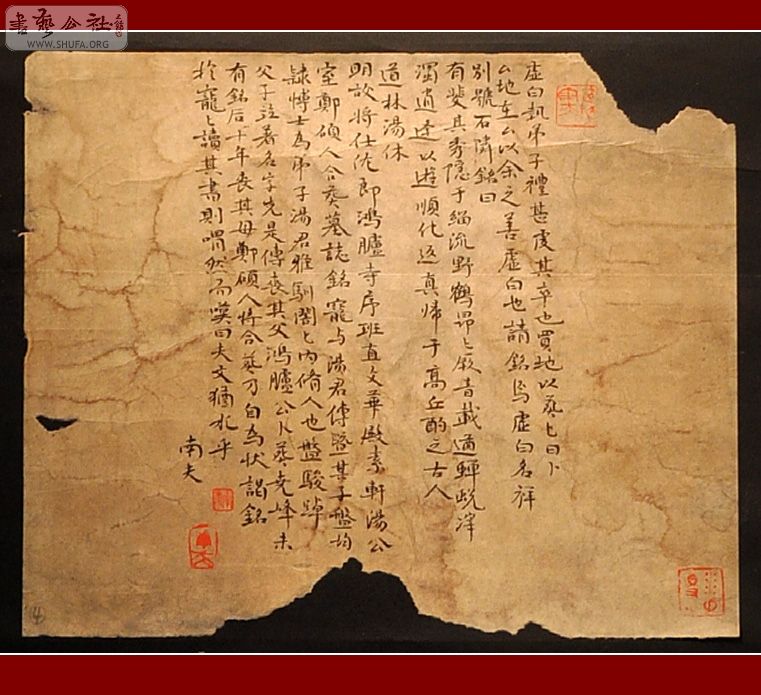 書藝公社
WWW.SHUFA.ORG
虛白執弟子禮甚虔其卒也買地以葬之曰卜
公地在公以余之善虛白也請銘焉虛白名祥
別號石隣銘曰
有斐其秀隱于緇流野鶴昂之厥音載遒蟬蛻滓
濁逍遙以遊順化返真歸于高丘酌之古人
道林湯休
明故將仕佐郎鴻臚寺序班直文華殿素軒湯公
室鄭碩人合葬墓誌銘寵与湯君傅暨其子盤均
隸博士為弟子湯君雅馴闇之內脩人也盤駿踔
父子並著名字先是傅喪其父鴻臚公卜葬堯峰未
有銘后十年喪其母鄭碩人將合葬乃自為狀謁銘
於寵之讀其書則喟然而嘆曰夫文猶水乎
南夫